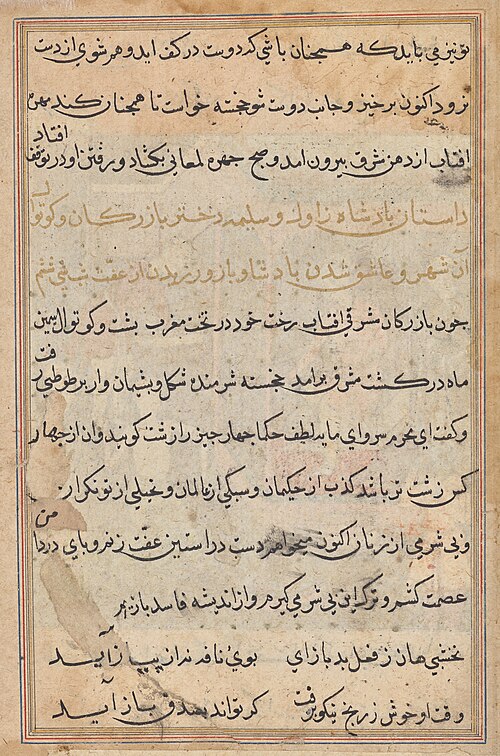 تو نیز می باید که همچنان باشی که دوست در کف اید و هم شوی از دست
نرود اکنون برخیز و جانب دوست شو خجسته خواست تا همچنان کند
افتاب از دهن شرق بیرون امد و صبح چهره لمعانی بکشاد و رفتن او در توقف افتاد
داستان بادشاه زاول و سلیمه دختر بازرکان و کوتوال
آن شهر و عاشق شدن بادشاه و باز ورزیدن از عفت شب
جون بازرکان شرقی افتاب رخت خود در تخت مغرب بست و کوتوال سیمین
ماه در کشت مشرق برامد خجسته شرمنده شکل و بشیمان وار بر طوطی رفت
و کفت ای محرم سر و ای مایه لطف حکما جهار جیز را زشت کویند و ان از جهار
کس زشت تر باشد کذب از حکیمان و سبکی از عالمان و بخیلی از تونکران
و بی شرمی از زنان اکنون میخواهم دست در استین عفت زنم و بای در دامن
عصمت کشم و ترک این بی شرمی کیرم و از اندیشه فاسد باز
نخشبی هان ز فعل بد باز ای بوی نافه نه از پیاز آید
وقت او خوش ز رخ نیکو رفت کر تواند بصدق باز آید